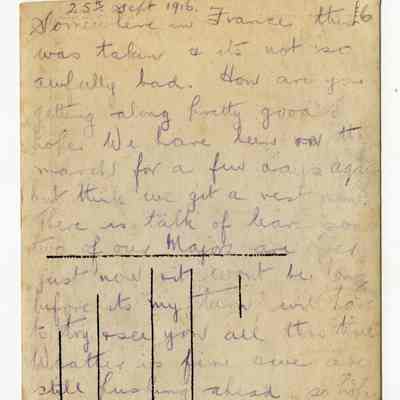 25th Sept 1916. £6
Somewhere in France this
was taken & its not so
awfully bad. How are you
getting along pretty good I
hope. We have been on the
march for a few days again
but think we get a rest now.
There is talk of leave soon
two of our Majors are
just now it wont be long
before its my turn will have
to try & see you all this time
Weather is fine & we are
still pushing ahead so